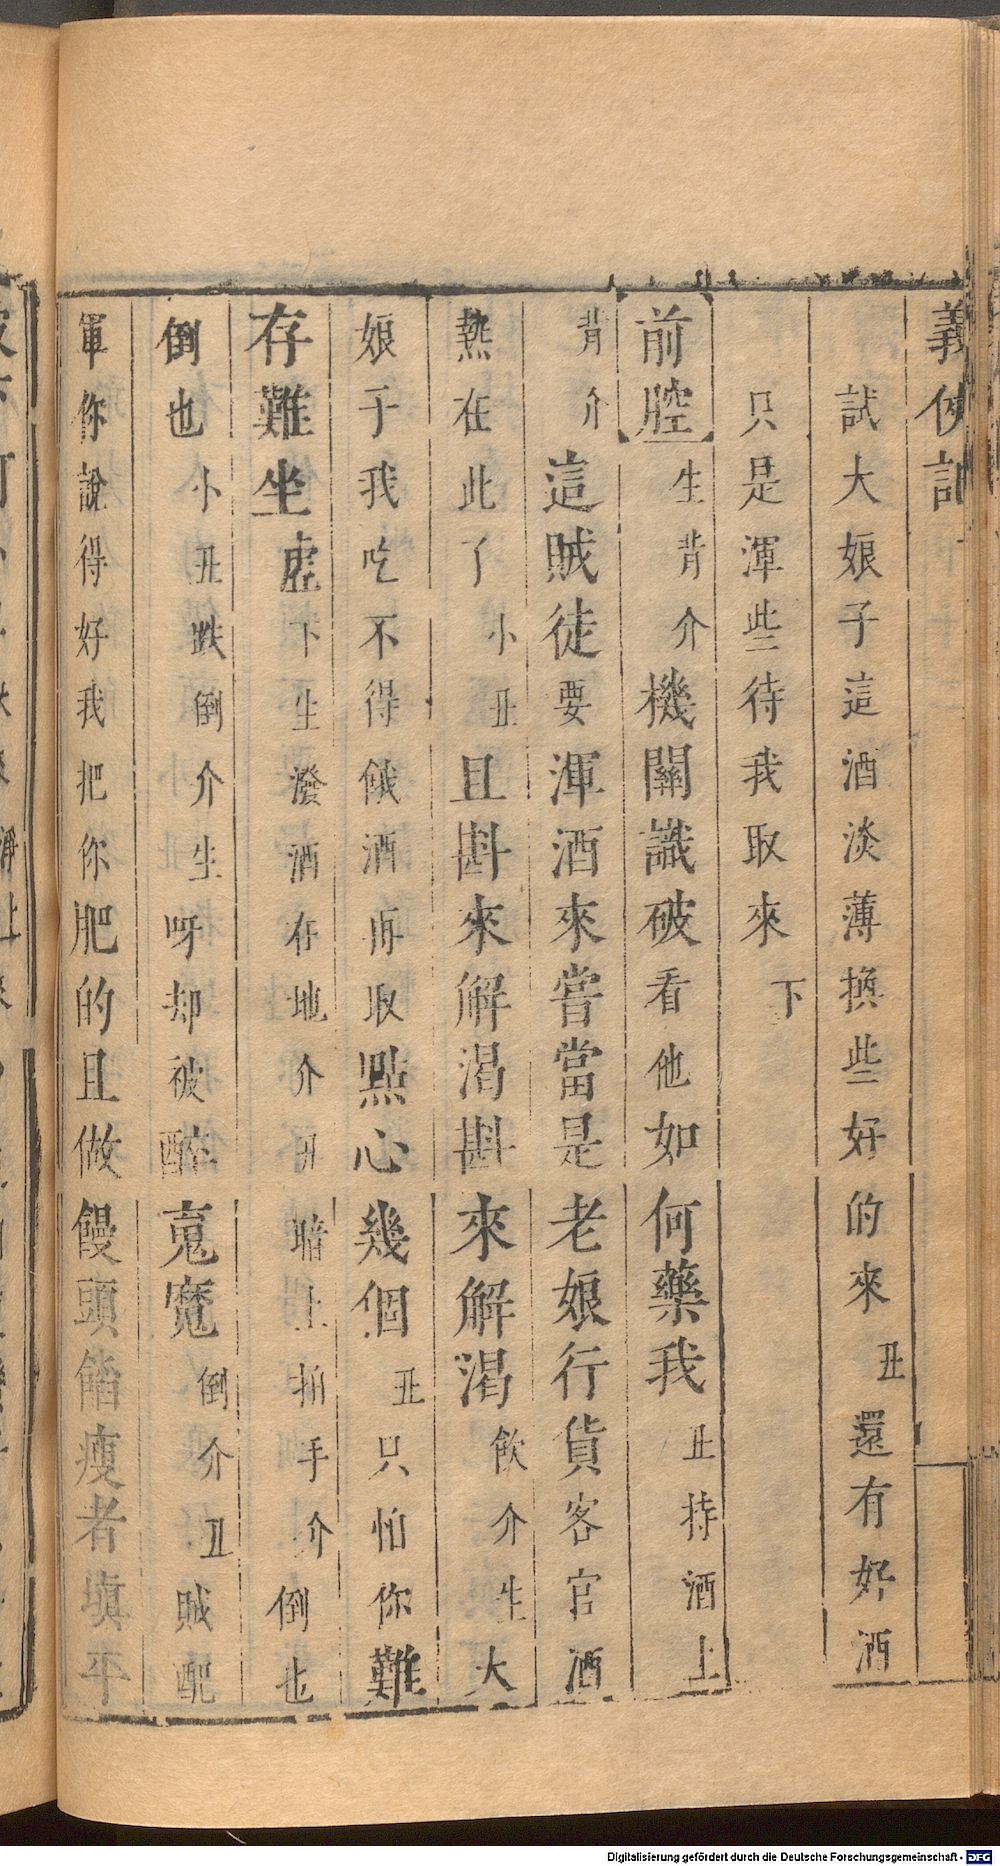 義俠記
試大娘子這酒淡薄換些好的來丑還有好酒
只是渾些待我取來下
前腔生背介機關識破看他如何藥我丑持酒上
背介這賊徒要渾酒來嘗當是老娘行貨客官酒
熱在此了小丑且斟來解渴斟來解渴飲介生大
娘子我吃不得餓酒再取點心幾個丑只怕你難
存難坐虛下生潑酒在地介丑暗上拍手介倒也
倒也小丑跌倒介生呀却被醉䰟魔倒介丑賊配
軍你說得好我把你肥的且做饅頭餡瘦者塡平
Digitalisierung gefördert durch die Deutsche Forschungsgemeinschaft - DFG